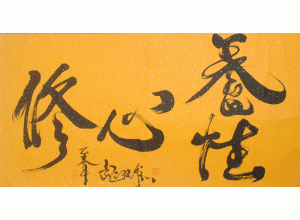 修心
養性